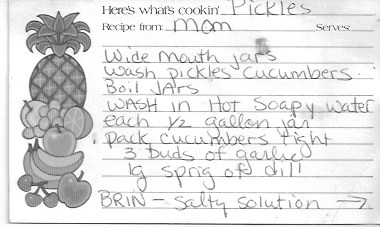 Here's what's cookin' Pickles
Recipe from: Mom Serves:
Wide mouth jars
Wash pickles cucumbers
Boil JArs
WASH in Hot Soapy water
each 1/2 gallon jar
pack cucumbers tight
3 buds of garlic
lg sprig of dill
BRIN - Salty solution →